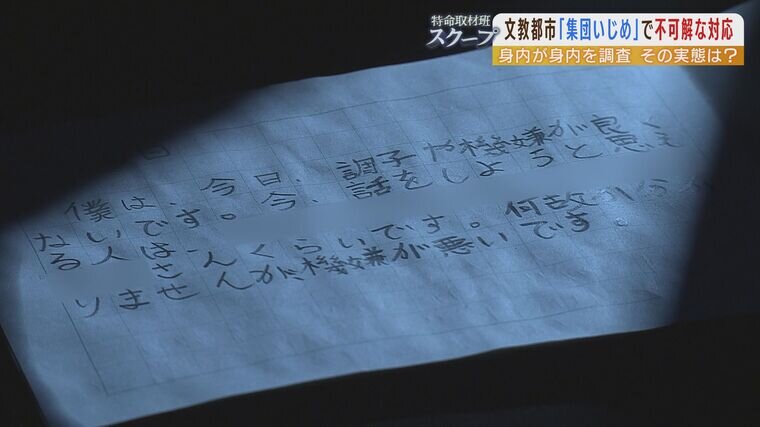 特命取材班
スクープ
文教都市「集団いじめ」で不可解な対応
身内が身内を調査 その実態は?
日
僕は、今日、調子や機嫌が良く
ないです。今、話をしようと思え
る人は さんくらいです。何故
りませんが、機嫌が悪いです。